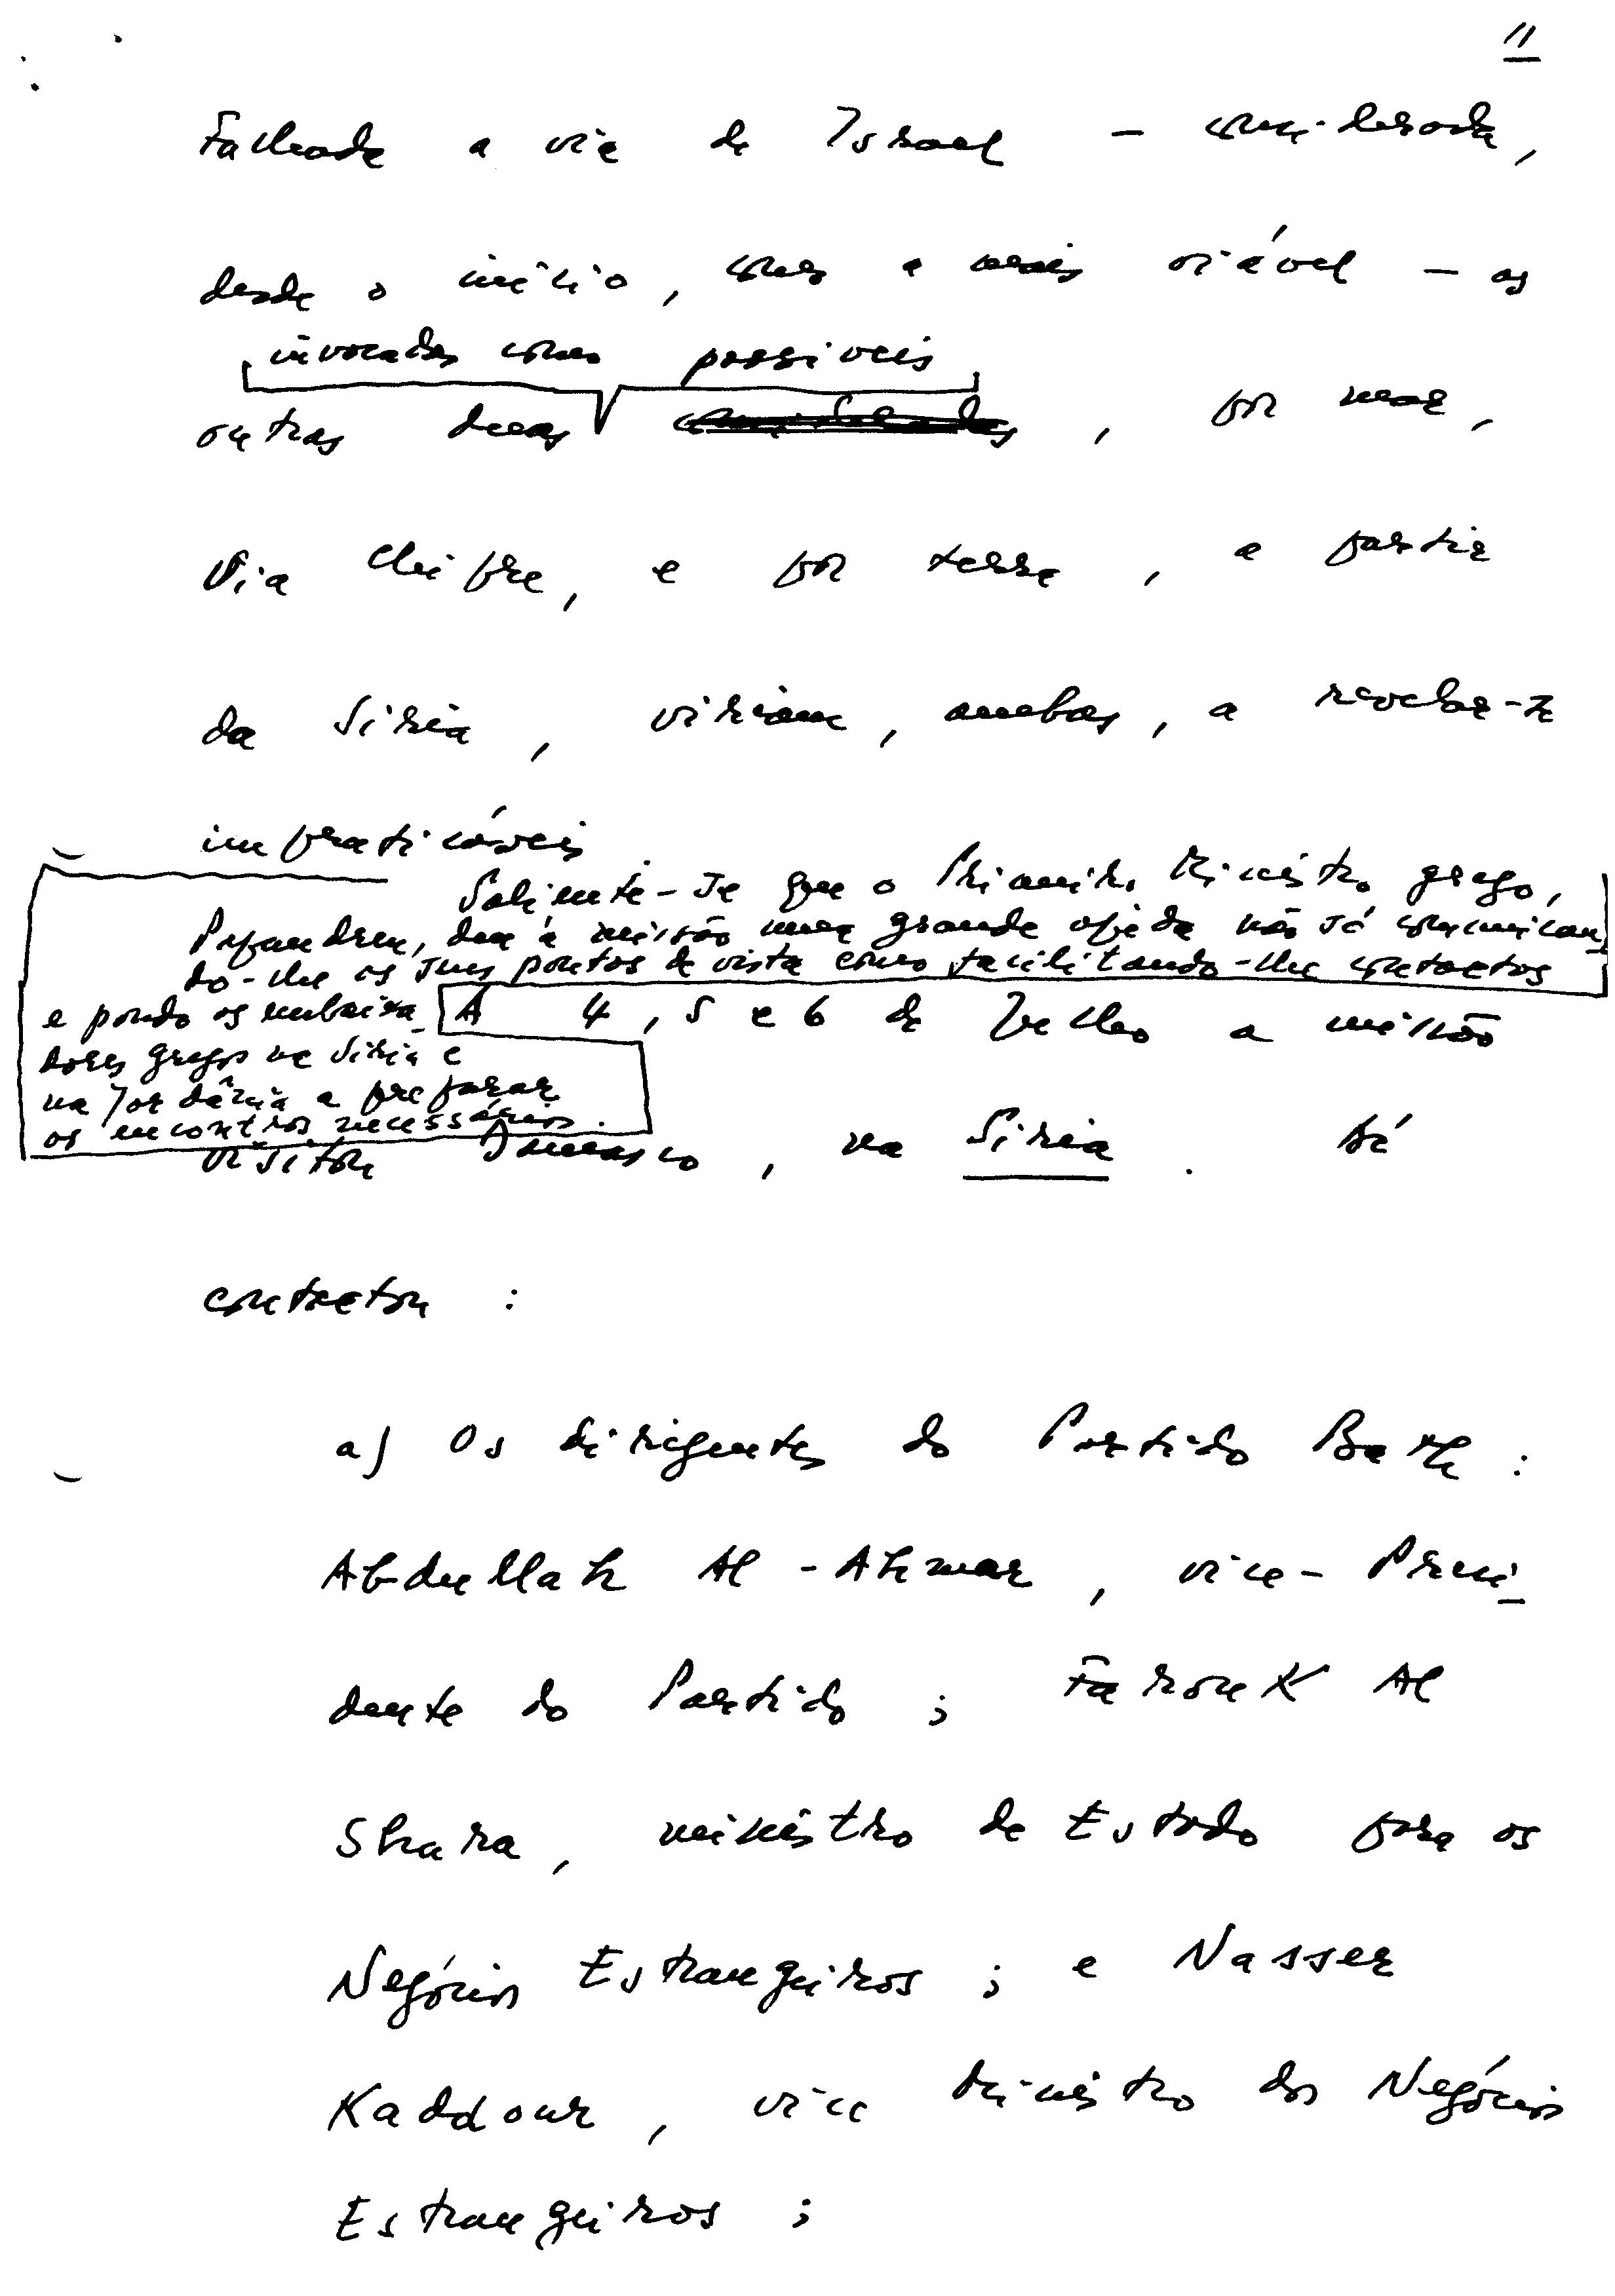 11
Falhada a via de Israel - considerada,
desde o início, como a mais viável - as
invocadas como possíveis
outras duas , por mar,
Via Chipre, e por terra, a partir
da Síria, viriam, ambas, a revelar-se
impraticáveis.
Saliente-se que o Primeiro Ministro grego,
Papandreu, deu à missão uma grande ajuda não só comunican
do-lhe os seus pontos de vista como facilitando-lhe contactos
e pondo os embaixa-
dores gregos na Síria e
na Jordânia a preparar
os encontros necessários.
A 4, 5 e 6 de Julho a missão
visitou Damasco, na Síria.
contactou:
a) Os dirigentes do Partido Bath:
Abdullah Al-Ahmar, vice-Presi
dente do Partido; Farouk Al
Shara, ministro de Estado para os
Negócios Estrangeiros; e Nasser
Kaddour, vice Ministro dos Negócios
Estrangeiros;